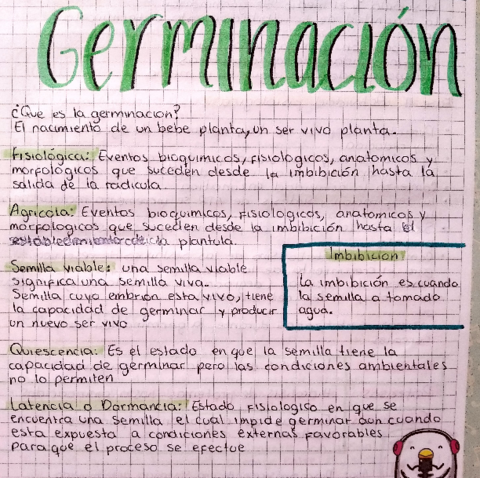 Germinación
¿Que es la germinacion?
El nacimiento de un bebe planta, un ser vivo planta.
Fisiológica: Eventos bioquimicos, fisiologicos, anatomicos y
morfologicos que suceden desde la imbibición hasta la
salida de la radicula.
Agricola: Eventos bioquimicos, Fisiologicos, anatomicos y
morfologicos que suceden desde la imbibición hasta el
establecimiento de la plantula.
Semilla viable: una semilla viable
significa una semilla viva.
Semilla cuyo embrion esta vivo, tiene
la capacidad de germinar y producir
un nuevo ser vivo
Imbibicion
La imbibición es cuando
la semilla a tomado
agua.
Quiescencia: Es el estado en que la semilla tiene la
capacidad de germinar pero las condiciones ambientales
no lo permiten
Latencia o Dormancia: Estado fisiologico en que se
encuentra una semilla el cual impide germinar aun cuando
esta expuesta a condiciones externas favorables
para que el proceso se efectue